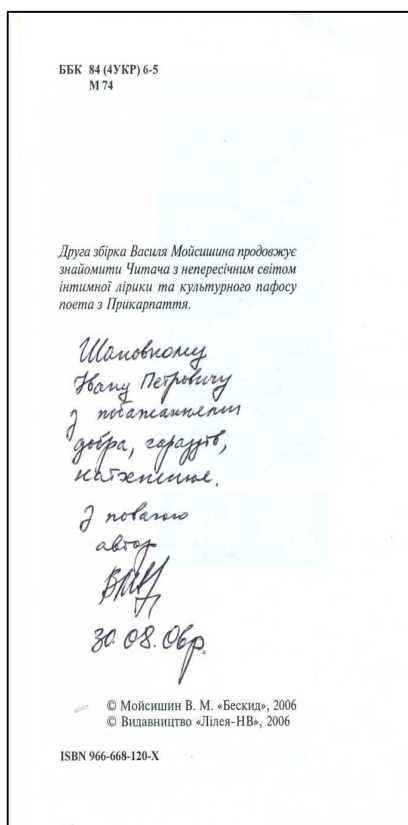 ББК 84 (4УКР) 6-5
М 74
Друга збірка Василя Мойсишина продовжує
знайомити Читача з непересічним світом
інтимної лірики та культурного пафосу
поета з Прикарпаття.
Шановному
Івану Петровичу
з побажаннями
добра, гараздів,
натхнення.
З повагою
автор
30.08.06р.
© Мойсишин В. М. «Бескид», 2006
© Видавництво «Лілея-НВ», 2006
ISBN 966-668-120-X